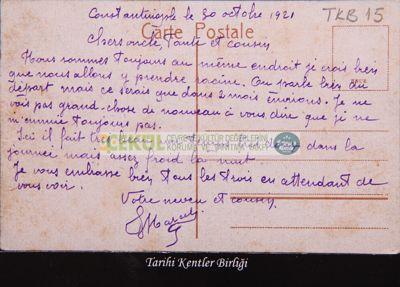 Constantinople le 30 octobre 1921
TKB 15
Carte Postale
Chers oncle, Tante et cousin
Nous sommes toujours au même endroit je crois bien
que nous allons y prendre racine. On parle bien du
départ mais ce serais que dans 2 mois environs. Je ne
vois pas grand-chose de nouveau à vous dire que je ne
m'ennuie toujours pas.
Ici il fait très beau dans la
ÇEKÜL ÇEVRE VE KÜLTÜR DEĞERLERİNİ
KORUMA VE TANITMA VAKFI
journée mais assez froid la nuit
Je vous embrasse bien tous les trois en attendant de
vous voir.
Votre neveu et cousin
Marcel
Tarihi Kentler Birliği